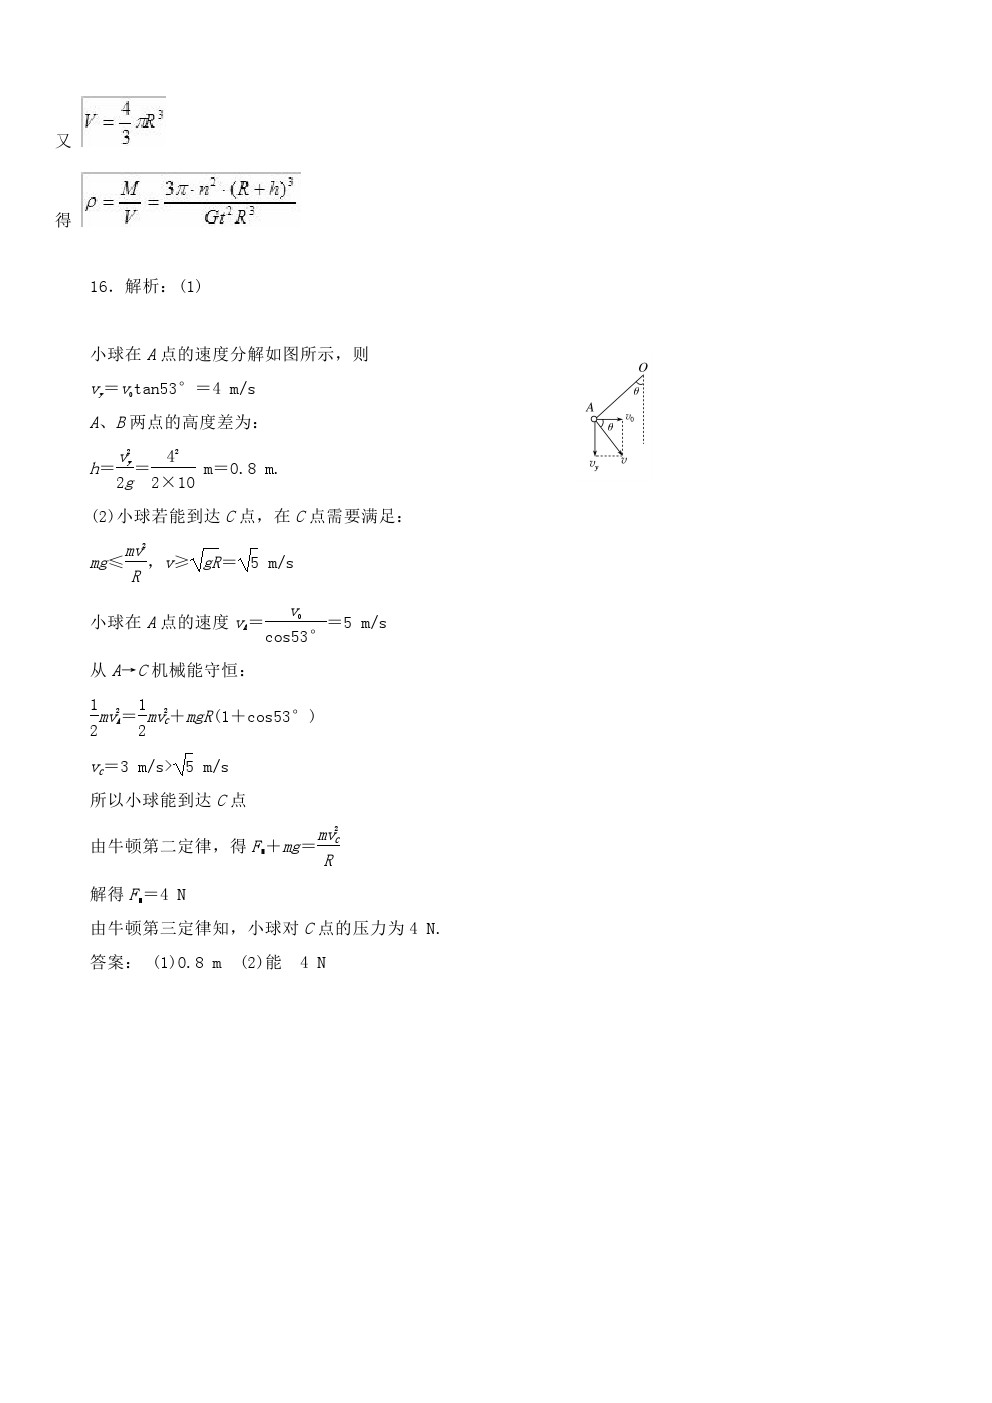 又 V = 4/3 πR³
得 ρ = M/V = 3π·n²·(R+h)³ / Gt²R³
16. 解析：(1)
小球在 A 点的速度分解如图所示，则
v_y＝v₀tan53°＝4 m/s
A、B 两点的高度差为：
h＝v_y²/2g＝4²/2×10 m＝0.8 m.
(2)小球若能到达 C 点，在 C 点需要满足：
mg≤mv²/R，v≥√gR＝√5 m/s
小球在 A 点的速度 v_A＝v₀/cos53°＝5 m/s
从 A→C 机械能守恒：
1/2 mv_A²＝1/2 mv_C²＋mgR(1＋cos53°)
v_C＝3 m/s>√5 m/s
所以小球能到达 C 点
由牛顿第二定律，得 F＋mg＝mv_C²/R
解得 F＝4 N
由牛顿第三定律知，小球对 C 点的压力为 4 N.
答案： (1)0.8 m (2)能 4 N
O
θ
A
v₀
θ
v_y
v